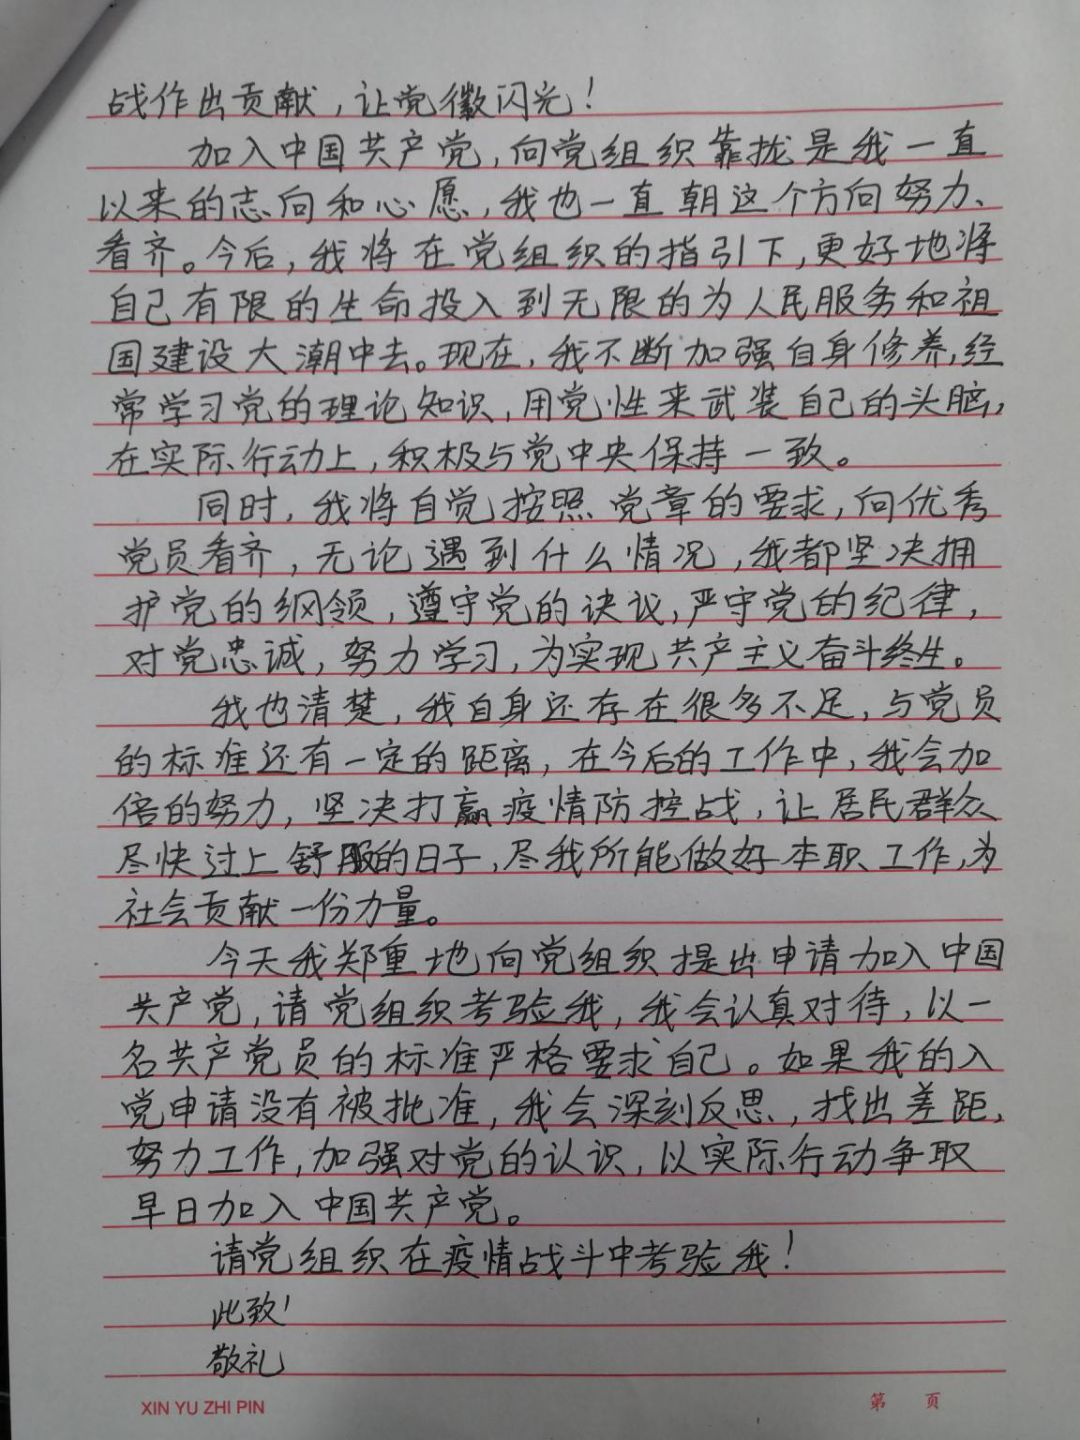 战作出贡献,让党徽闪光!
加入中国共产党,向党组织靠拢是我一直
以来的志向和心愿,我也一直朝这个方向努力、
看齐。今后,我将在党组织的指引下,更好地将
自己有限的生命投入到无限的为人民服务和祖
国建设大潮中去。现在,我不断加强自身修养,经
常学习党的理论知识,用党性来武装自己的头脑,
在实际行动上,积极与党中央保持一致。
同时,我将自觉按照党章的要求,向优秀
党员看齐,无论遇到什么情况,我都坚决拥
护党的纲领,遵守党的决议,严守党的纪律,
对党忠诚,努力学习,为实现共产主义奋斗终生。
我也清楚,我自身还存在很多不足,与党员
的标准还有一定的距离,在今后的工作中,我会加
倍的努力,坚决打赢疫情防控战,让居民群众
尽快过上舒服的日子,尽我所能做好本职工作,为
社会贡献一份力量。
今天我郑重地向党组织提出申请加入中国
共产党,请党组织考验我,我会认真对待,以一
名共产党员的标准严格要求自己。如果我的入
党申请没有被批准,我会深刻反思,找出差距,
努力工作,加强对党的认识,以实际行动争取
早日加入中国共产党。
请党组织在疫情战斗中考验我!
此致!
敬礼
XIN YU ZHI PIN 第 页